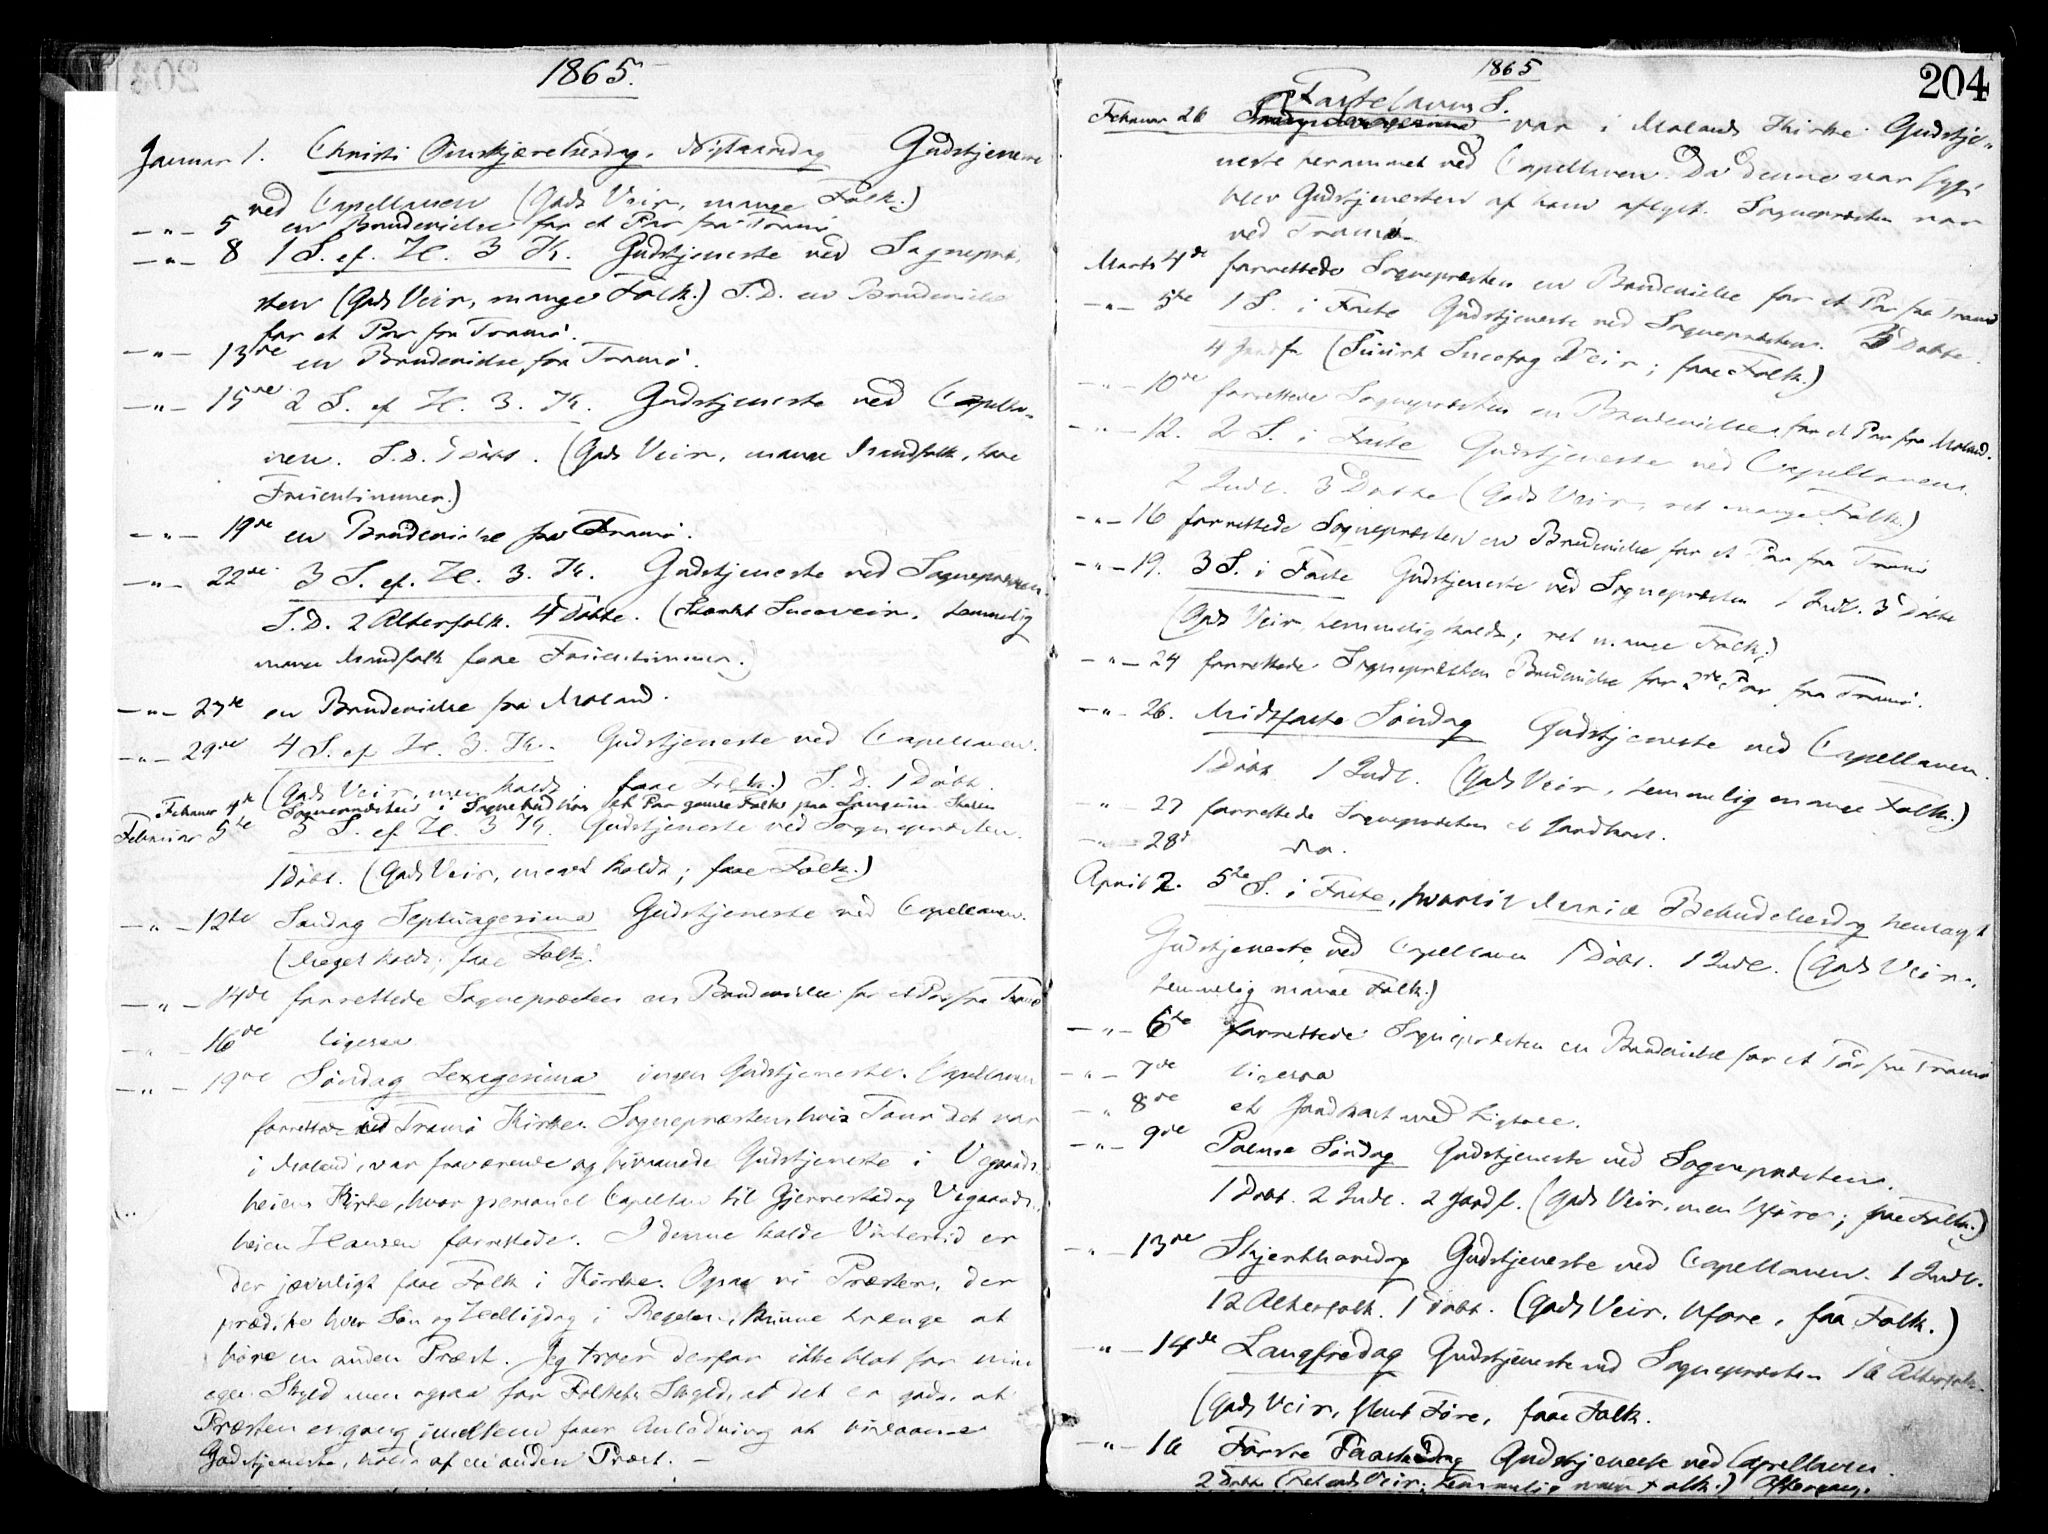 1865.
Januar 1. Christi Omskjærelsesdag. Nytaarsdag Gudstjeneste
ved Capellanen (Gods Veir, mange Folk.)
—"— 5 en Brudevielse for et Par fra Tromö
—"— 8 1 S. ef. H. 3 K. Gudstjeneste ved Sognepræ-
sten (Gods Veir, mange Folk.) S.D. en Brudevielse
for et Par fra Tromö.
—"— 13de en Brudevielse fra Tromö.
—"— 15de 2 S. ef H. 3. K. Gudstjeneste ved Capella-
nen. S.D. 1 Döbt. (Gods Veir, mange Mandfolk, faae
Fruentimmer.)
—"— 19de en Brudevielse fra Tromö.
—"— 22de 3 S. ef. H. 3. K. Gudstjeneste ved Sognepræsten.
S.D. 2 Alterfolk. 4 Döbte. (Stærkt Sneeveir, temmelig
mange Mandfolk faae Fruentimmer.)
—"— 27de en Brudevielse fra Moland.
—"— 29de 4 S. ef H. 3. K. Gudstjeneste ved Capellanen.
(Gods Veir, men koldt. faae Folk.) S.D. 1 Döbt.
Februar 4de Sognepræsten i Sognebud hos et Par gamle Folk paa
Februar 5te 5 S. ef. H. 3 K. Gudstjeneste ved Sognepræsten.
1 Döbt. (Gods Veir, meget koldt; faae Folk.)
—"— 12te Söndag Septuagesima Gudstjeneste ved Capellanen.
(Meget koldt. faae Folk)
—"— 14de forrettede Sognepræsten en Brudevielse for et Par fra Tromö
—"— 16de ligesaa
—"— 19de Söndag Sexagesima ingen Gudstjeneste. Capellanen
forrettede ved Tromö Kirke. Sognepræsten, hvis Tour det var
i Moland, var fraværende og bivaanede Gudstjeneste i Vegaards-
heiens Kirke, hvor personel Capellan til Gjerrestad og Vegaards-
heien Hansen forrettede. I denne kolde Vintertid er
der jævnligt faae Folk i Kirke. Ogsaa vi Præster, der
prædike hver Søn og Helligdag i Regelen, kunne trænge at
höre en anden Præst. Jeg troer derfor ikke blot for min
egen Skyld men ogsaa for Folkets Skyld, at det er godt, at
Præsten engang imellem faaer Anledning at bivaane
Gudstjeneste, holdt af en anden Præst. —
1865
204
Fastelavns S.
Februar 26 var i Molands Kirke Gudstje-
neste berammet ved Capellanen. Da denne var syg,
blev Gudstjenesten af ham aflyst. Sognepræsten var
ved Tromö.
Marts 4de forrettede Sognepræsten en Brudevielse for et Par fra Tromö
—"— 5te 1 S. i Faste Gudstjeneste ved Sognepræsten. 3 Döbte.
4 Jordf. (Sneefog Veir; faae Folk.)
—"— 10de forrettede Sognepræsten en Brudevielse for et Par fra Moland.
—"— 12. 2 S. i Faste Gudstjeneste ved Capellanen.
2 Indl. 3 Döbte (Gods Veir, ret mange Folk.)
—"— 16 forrettede Sognepræsten en Brudevielse for et Par fra Tromö
—"— 19. 3 S. i Faste Gudstjeneste ved Sognepræsten 1 Indl. 3 Döbte
(Gods Veir, temmelig koldt; ret mange Folk)
—"— 24 forrettede Sognepræsten Brudevielse for 2de Par fra Tromö.
—"— 26. Midtfaste Söndag Gudstjeneste ved Capellanen.
1 Döbt 1 Indl. (Gods Veir, temmelig mange Folk.)
—"— 27 forrettede Sognepræsten et Jordkast.
—"— 28d do.
April 2. 5te S. i Faste, hvortil Mariæ Bebudelsesdag henlagt
Gudstjeneste ved Capellanen 1 Döbt. 1 Indl. (Gods Veir,
temmelig mange Folk.)
—"— 6te forrettede Sognepræsten en Brudevielse for et Par fra Tromö
—"— 7de ligesaa
—"— 8de et Jordkast med Ligtale.
—"— 9de Palme Söndag Gudstjeneste ved Sognepræsten.
1 Döbt. 2 Indl. 2 Jordf. (Gods Veir, men Uföre; faae Folk.)
—"— 13de Skjertorsdag Gudstjeneste ved Capellanen. 1 Indl.
12 Alterfolk. 1 Döbt. (Gods Veir, Uföre, faae Folk.)
—"— 14de Langfredag Gudstjeneste ved Sognepræsten 16 Alterfolk.
(Gods Veir, slemt Före, faae Folk.
—"— 16 Förste Paaskedag Gudstjeneste ved Capellanen.
2 Döbte (Ret gods Veir; temmelig mange Folk.)